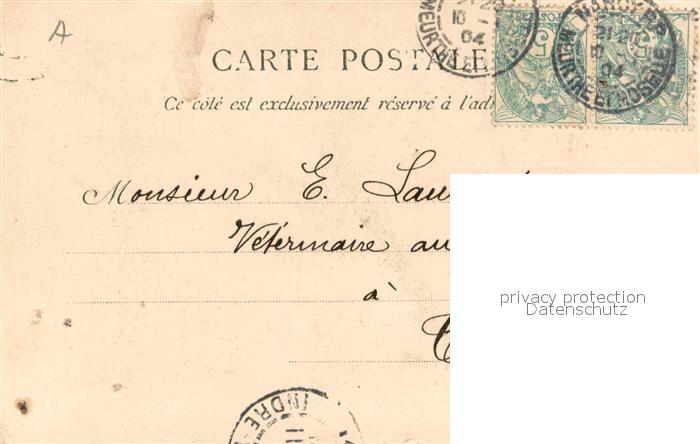 A
CARTE POSTALE
Ce côté est exclusivement réservé à l'adr
NANCY
21-25
10 -
04
MEURTHE ET MOSELLE
Monsieur E. Lau
Vétérinaire au
à
privacy protection
Datenschutz
INDRE